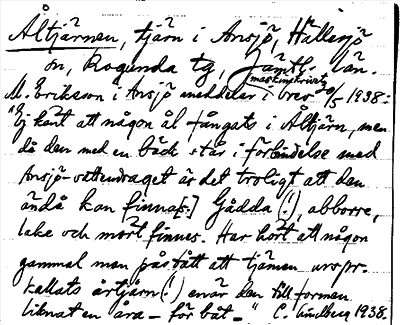 Åltjärnen, tjärn i Ansjö, Hällesjö
sn, Ragunda tg, Jämtl. län.
maskinskrivet
M. Erikson i Ansjö meddelar i brev 20/5 1938:
"Ej hört att någon ål fångats i Åltjärn, men
då den med en bäck står i förbindelse med
Ansjö-vattendraget är det troligt att den
ändå kan finnas.] Gädda (!), abborre,
lake och mört finnes. Har hört att någon
gammal man påstått att tjärnen urspr.
kallats årtjärn (!) enär den till formen
liknat en åra – för båt –" C. Lindberg 1938.